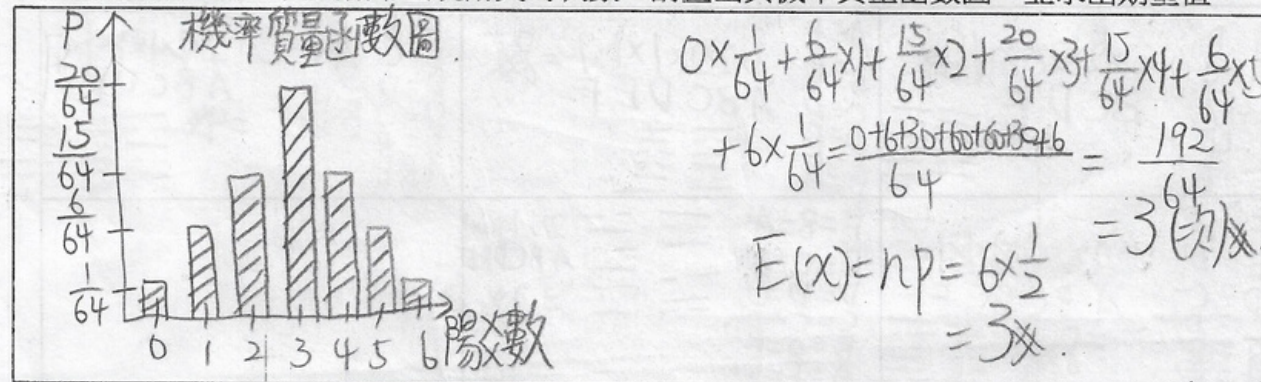 P 機率質量函數圖
20/64
15/64
6/64
1/64
0 1 2 3 4 5 6 陽爻數
0×1/64+6/64×1+15/64×2+20/64×3+15/64×4+6/64×5
+6×1/64=0+6+30+60+60+30+6/64=192/64
=3(次)
E(x)=np=6×1/2
=3